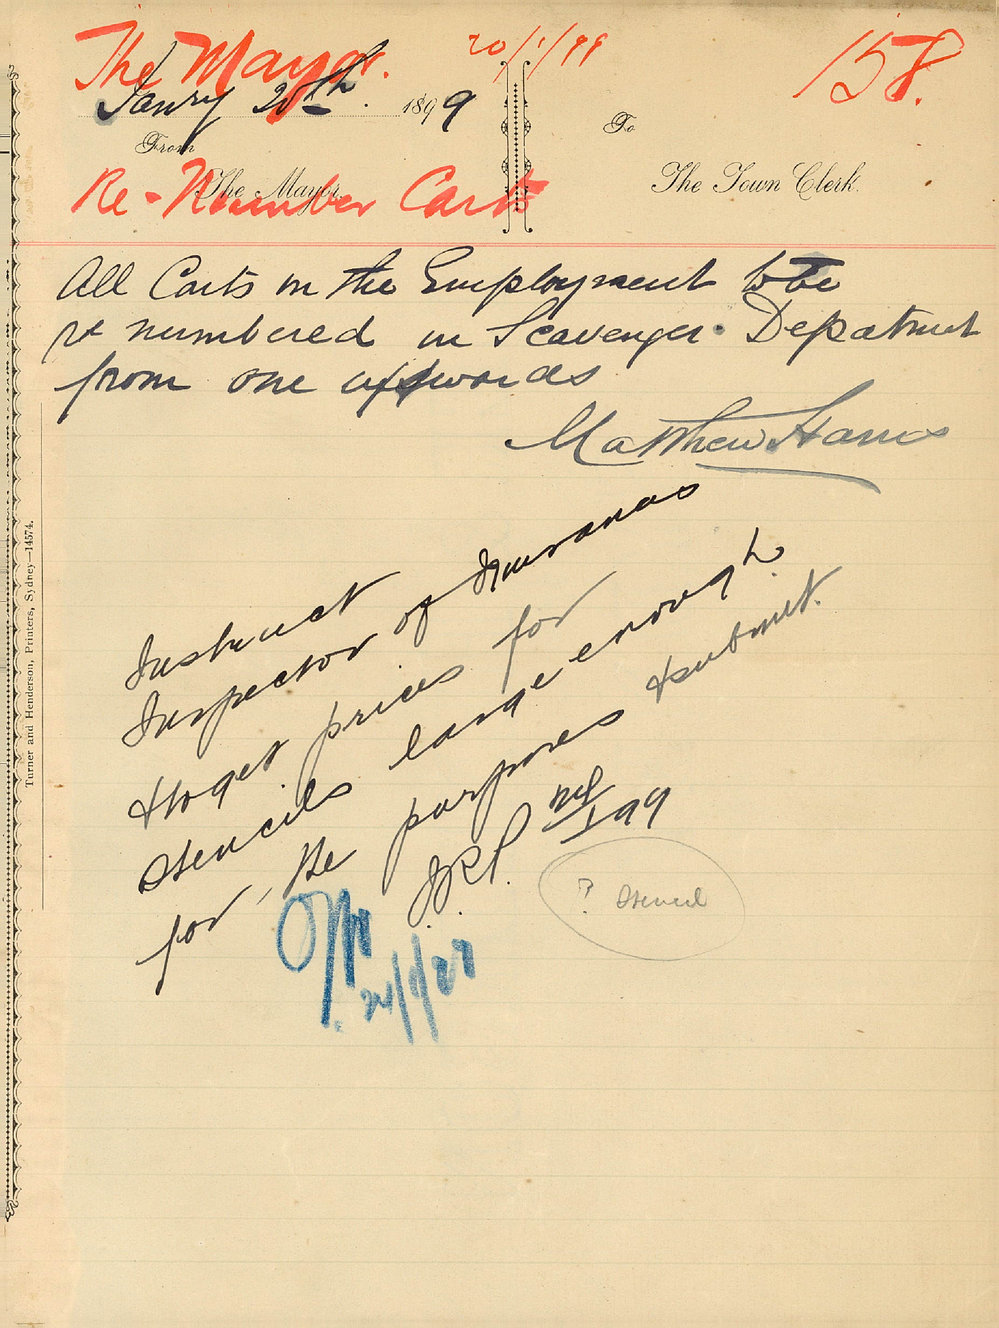 The Mayor. 20/1/99 158.
Janry 20th. 1899
From
The Mayor
To
The Town Clerk.
Re-Number Carts
All Carts in the Employment to be
re numbered in Scavenger Department
from one upwards
Matthew Harris
Instruct
Inspector of Nuisances
& to get prices for
stencils large enough
for the purposes & submit.
? stencil
Turner and Henderson, Printers, Sydney—14574.